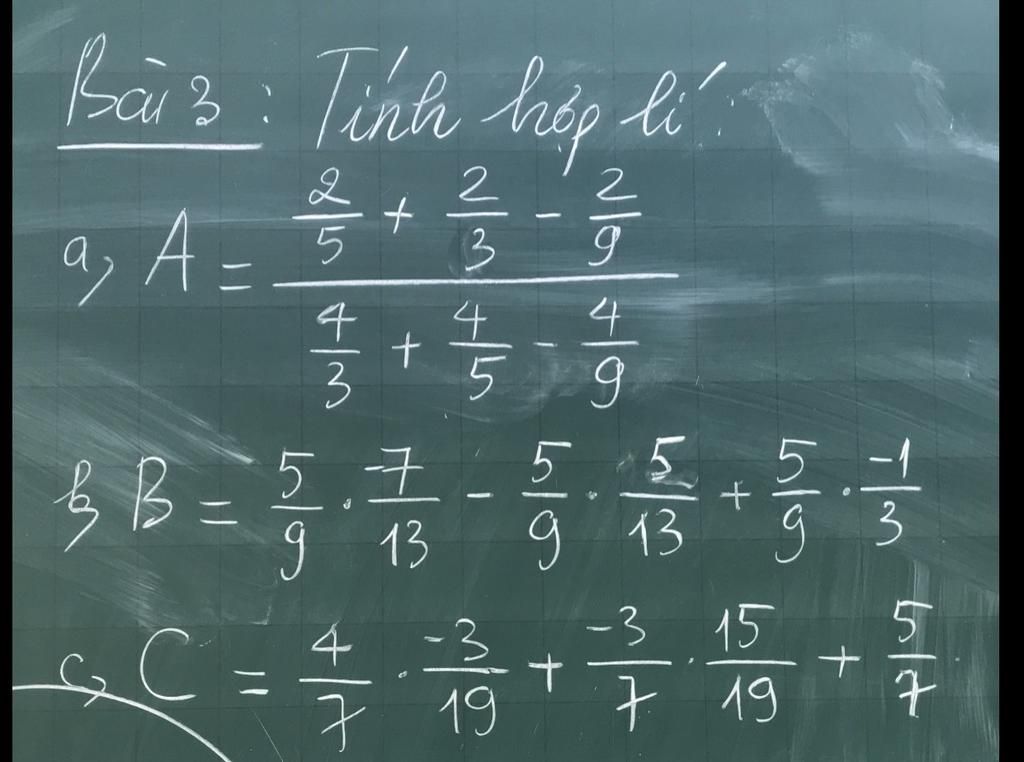 Bài 3 : Tính hợp lí :
a, A = (2/5 + 2/3 - 2/9) / (4/3 + 4/5 - 4/9)
b, B = 5/9 . -7/13 - 5/9 . 5/13 + 5/9 . -1/3
c, C = 4/7 . -3/19 + -3/7 . 15/19 + 5/7